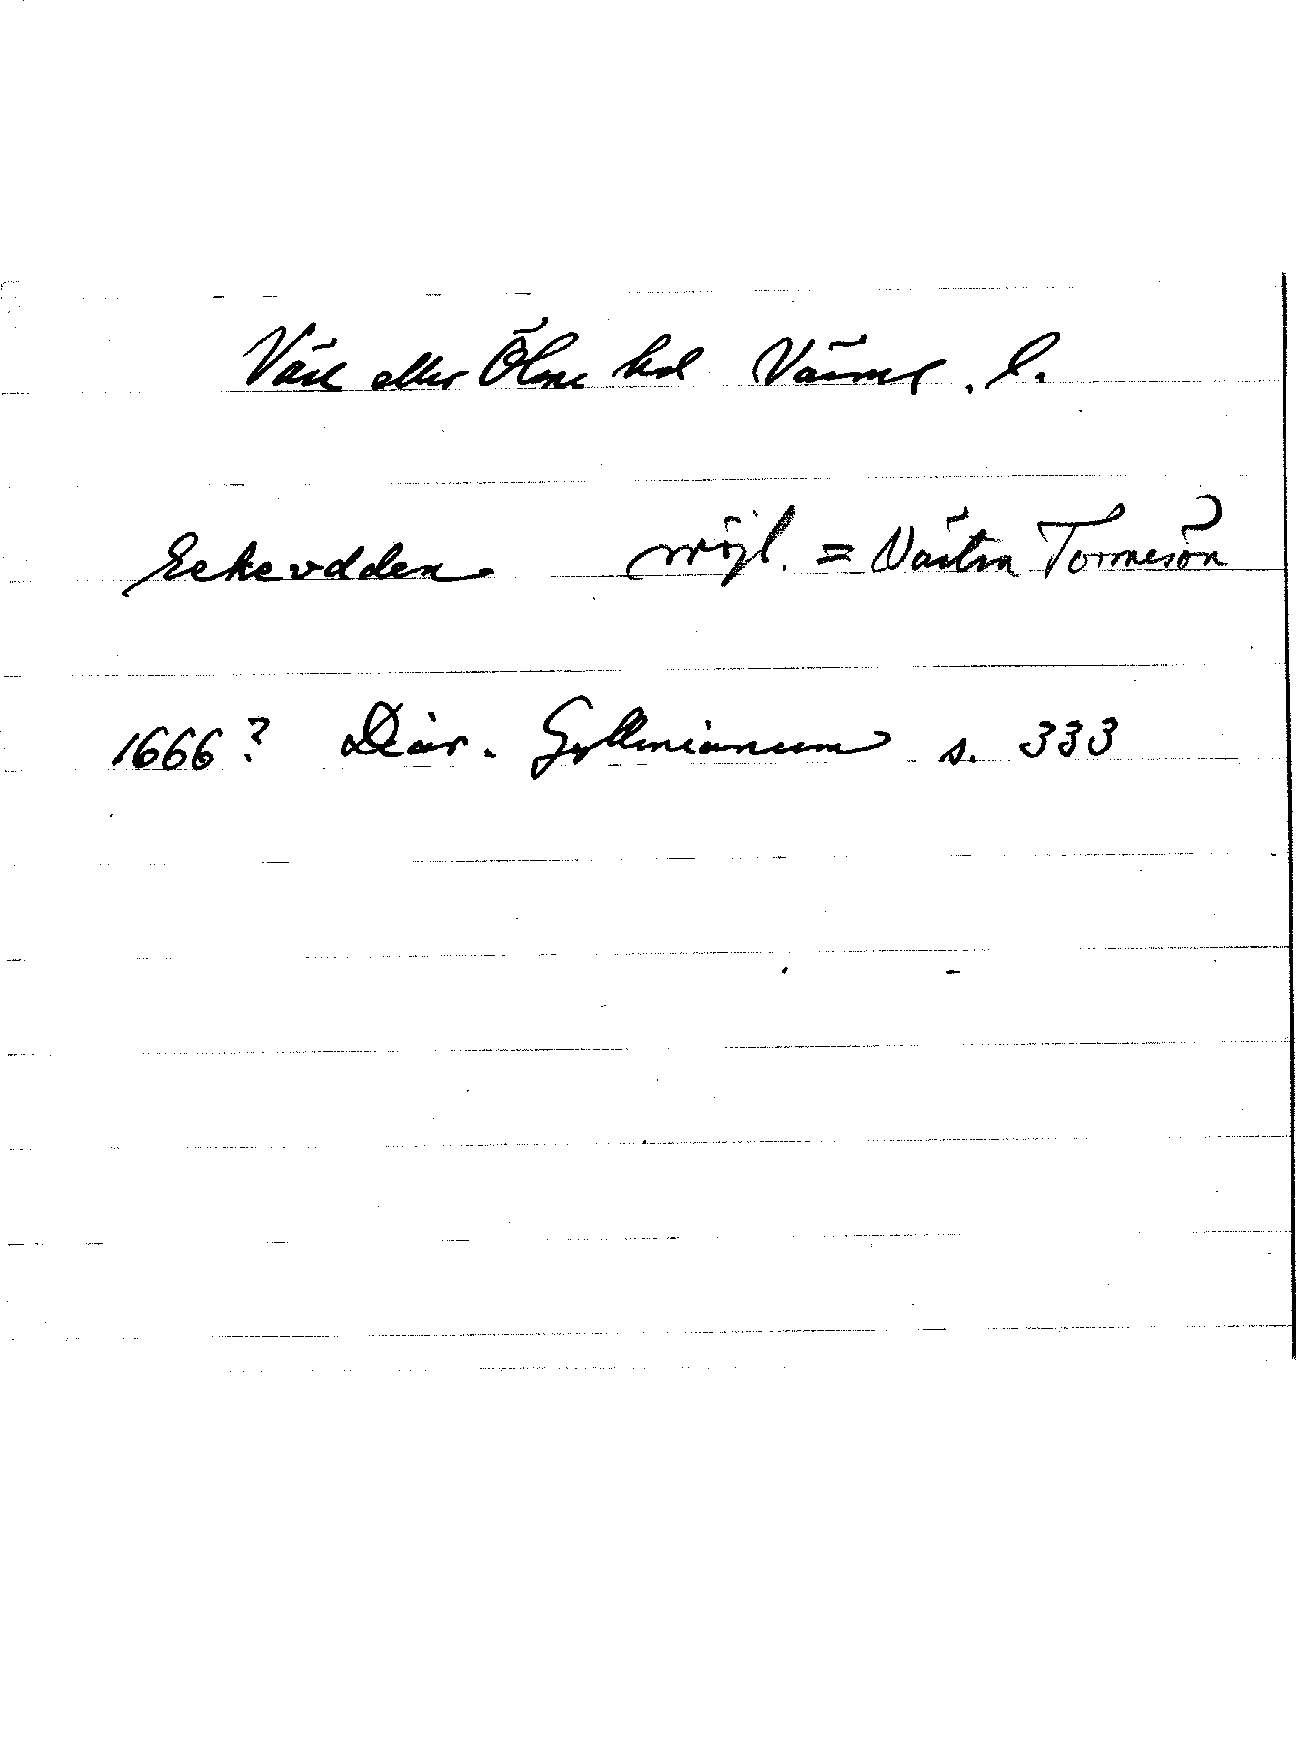 Väse eller Ölme hd Värml. l.
Eekevdden möjl. = Västra Tormesön
1666? Diar. Gyllenianum s. 333